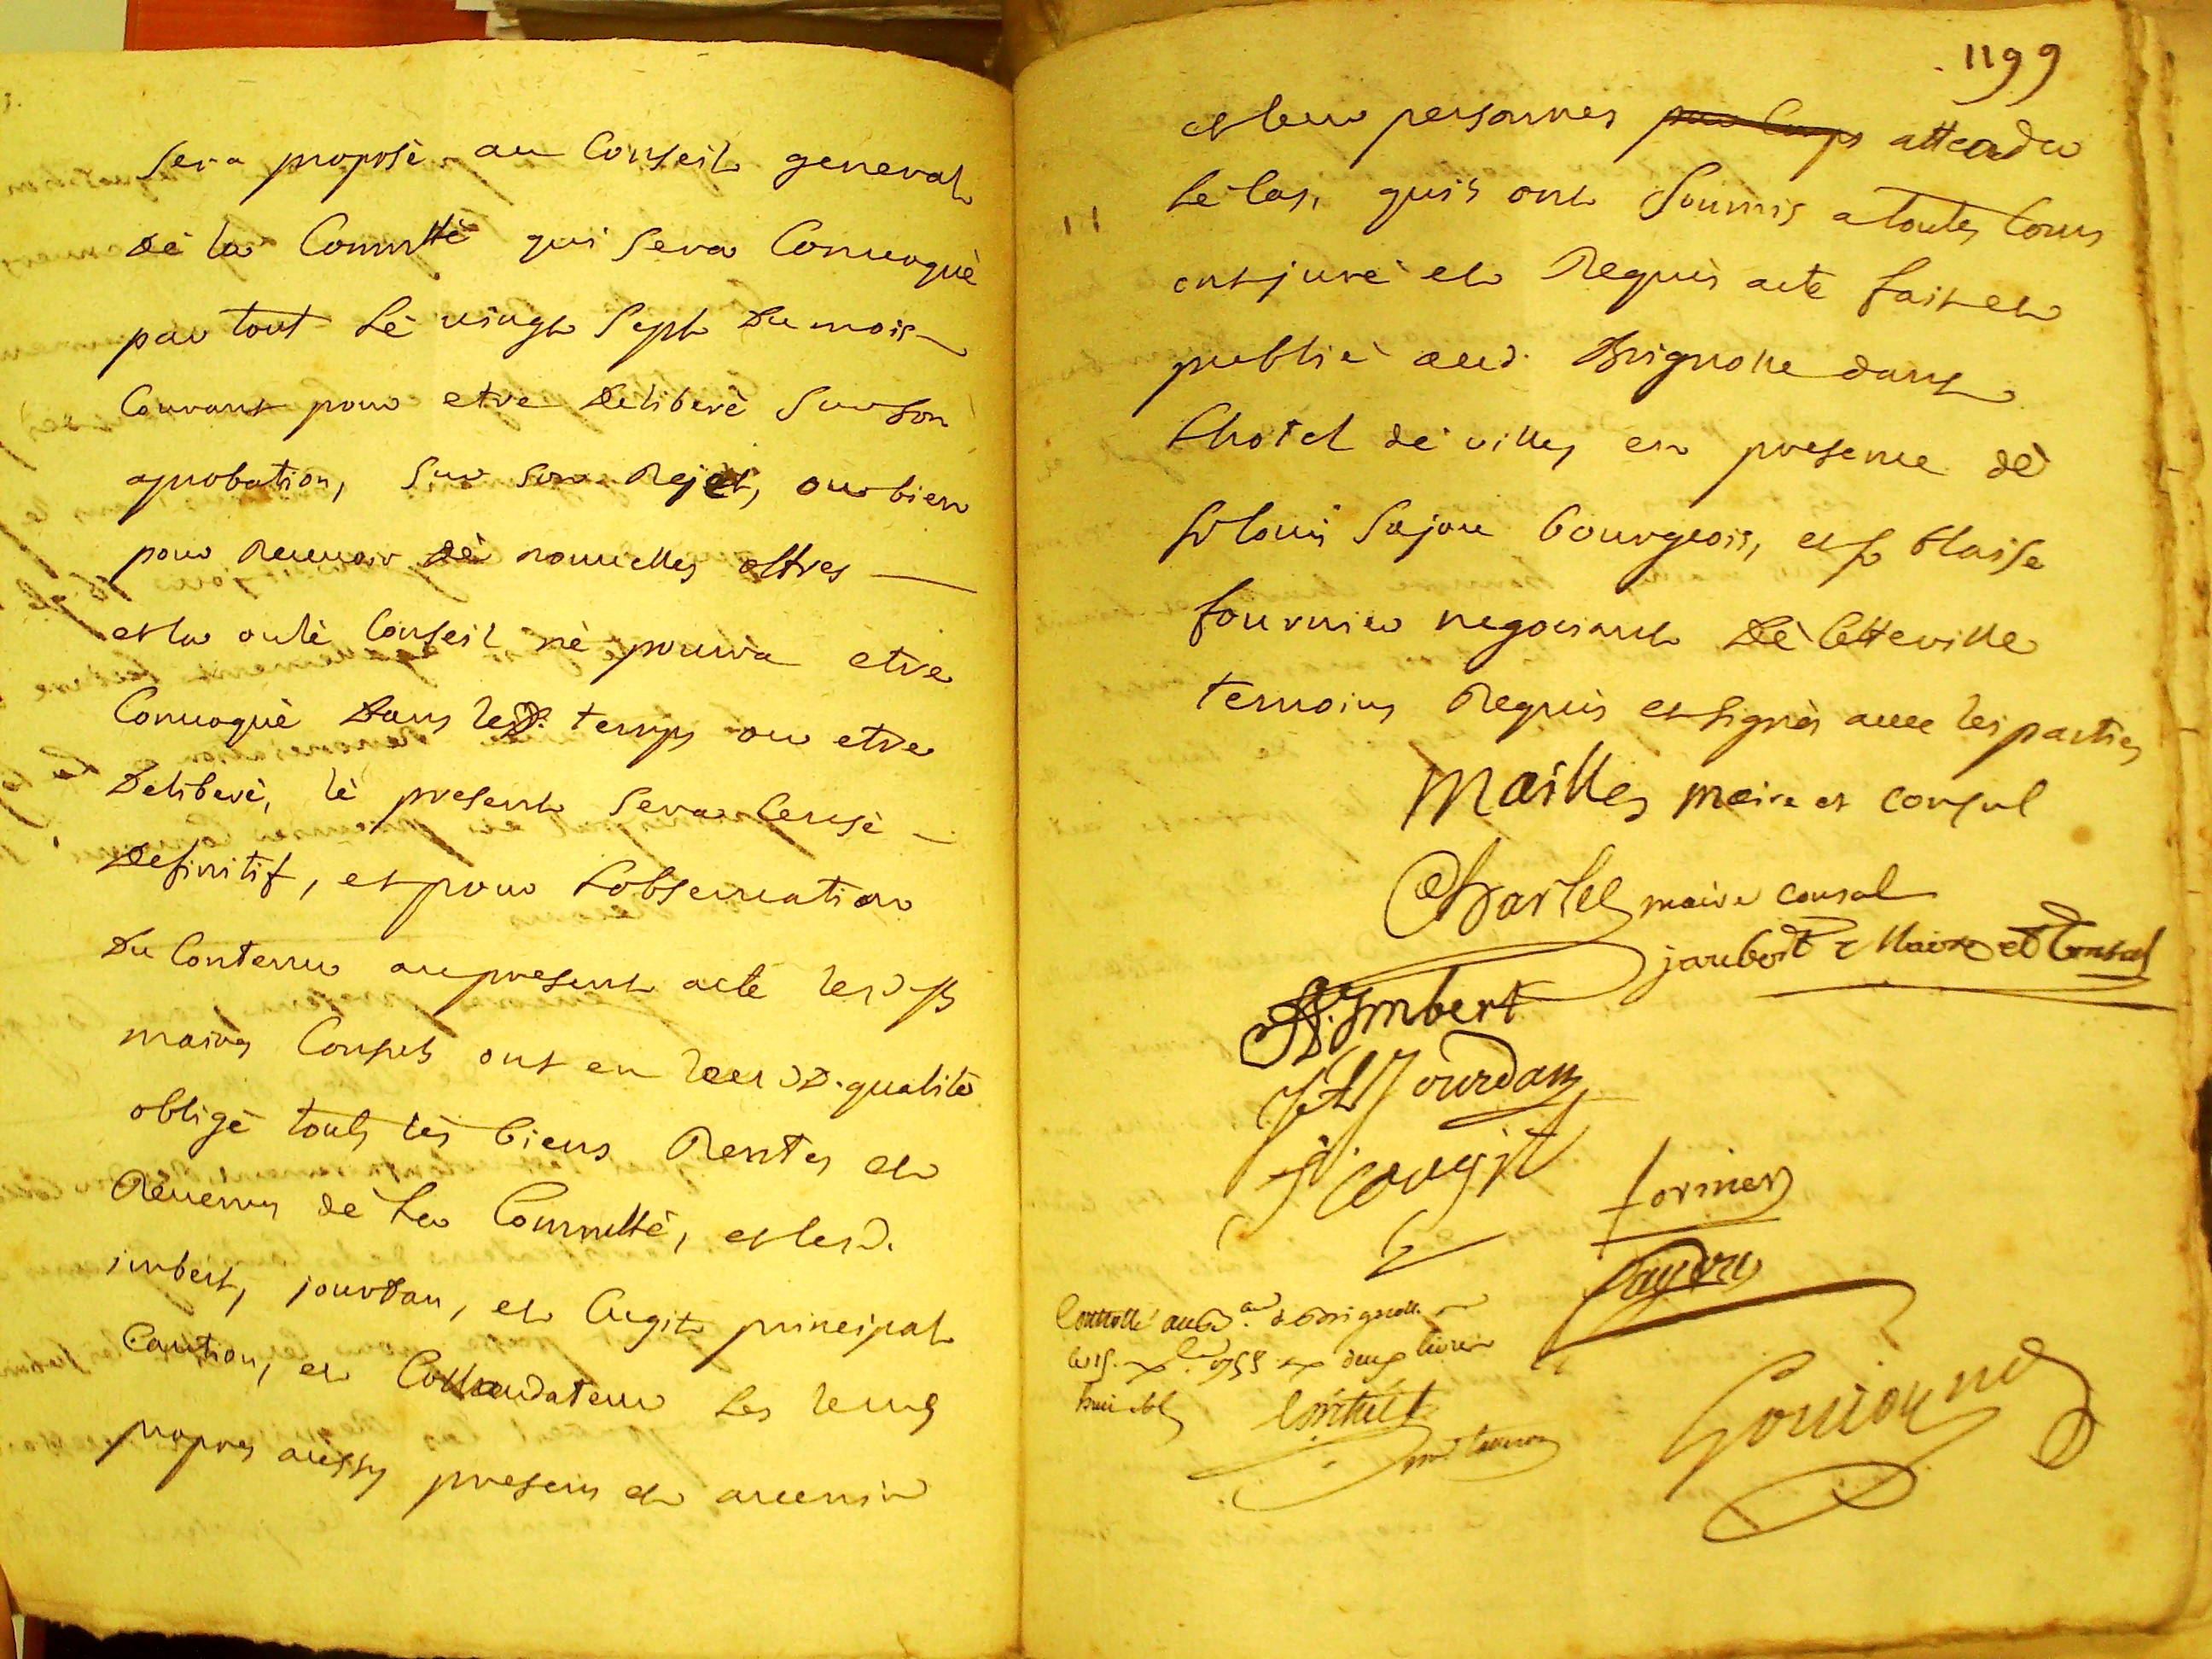 sera proposé au Conseil general
dé la Comm^tté qui sera Conuoqué
par tout lé uingt sept du mois
Courant pour etre deliberé sur son
aprobation, sur son Rejet, ou bien
pour Receuoir dé nouuelles offres —
et la ou lé Conseil né pourra etre
Conuoqué dans led. temps ou etre
deliberé, lé present sera Censé —
definitif, et pour l'obseruation
du Contenu au present acte lesd. srs
maires Consuls ont en leur d. qualité
obligé touts lés biens Rentes et
Reuenus dé la Commtté, et lesd.
imbert, jourdan, et Augit principal
Caution, et Collaudateur les leurs
propres aussy presens et auenir
1199
et leur personnes par Corps attendu
lé Cas, qu'is ont soumis a toutes Cours
ont juré et Requis acte fait et
publié aud. Brignolle dans
l'hotel dé ville, en presence dé
sr louis bourgeois, et sr blaise
fournier negociant dé Cette ville
temoins Requis et signés auec les parties
Mailles maire et consul
maire consul
jaubert Maire et Consul
Imbert
Jourdan
Augit
fornier
Controllé au B.au de Brignolle
le 15. 1755 deux livres
huit s.
Goujon nre